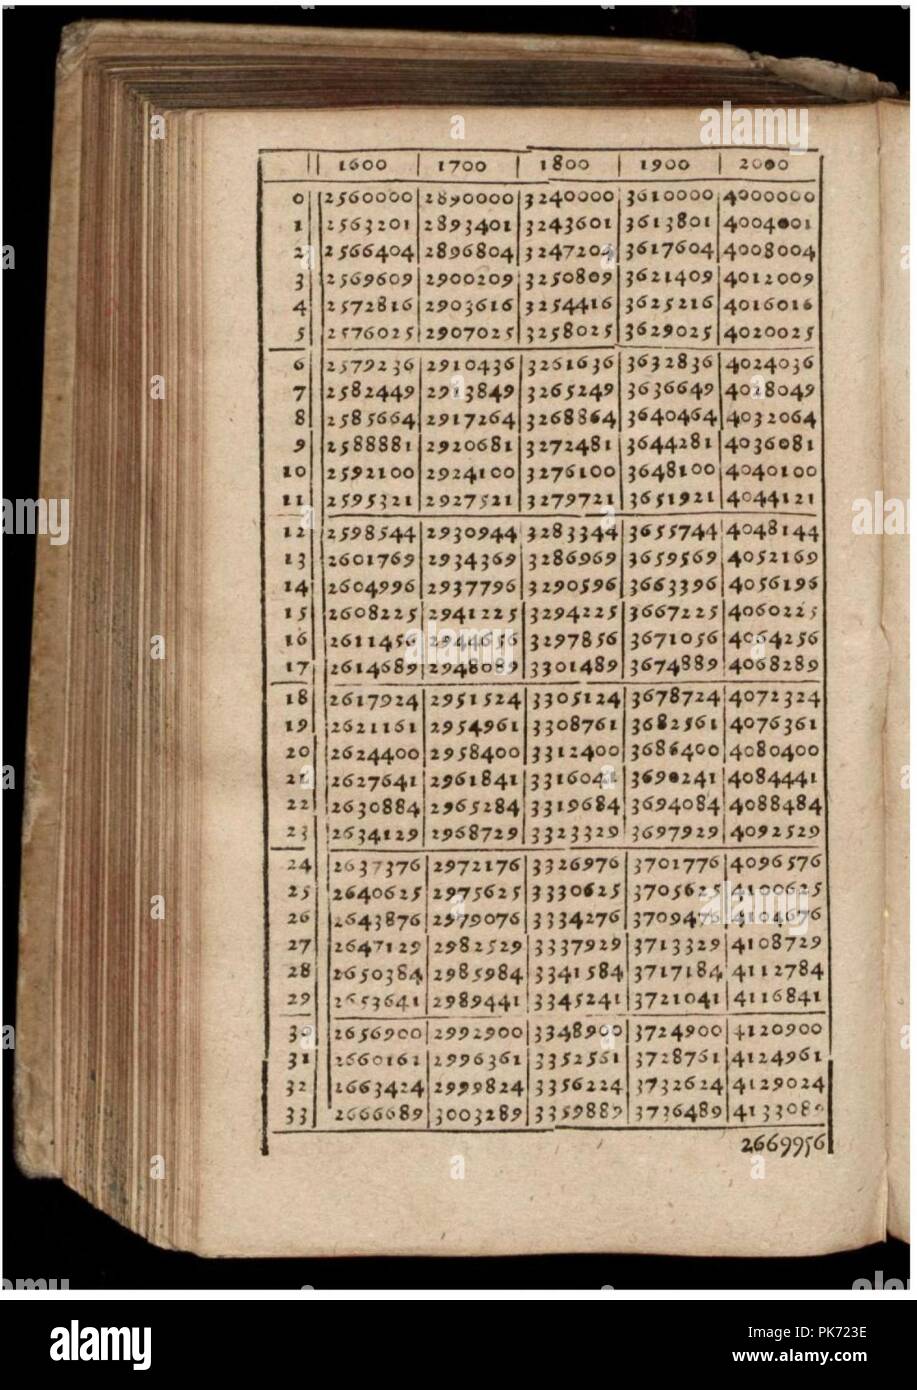 1600 1700 1800 1900 2000
0 2560000 2890000 3240000 3610000 4000000
1 2563201 2893401 3243601 3613801 4004001
2 2566404 2896804 3247204 3617604 4008004
3 2569609 2900209 3250809 3621409 4012009
4 2572816 2903616 3254416 3625216 4016016
5 2576025 2907025 3258025 3629025 4020025
6 2579236 2910436 3261636 3632836 4024036
7 2582449 2913849 3265249 3636649 4028049
8 2585664 2917264 3268864 3640464 4032064
9 2588881 2920681 3272481 3644281 4036081
10 2592100 2924100 3276100 3648100 4040100
11 2595321 2927521 3279721 3651921 4044121
12 2598544 2930944 3283344 3655744 4048144
13 2601769 2934369 3286969 3659569 4052169
14 2604996 2937796 3290596 3663396 4056196
15 2608225 2941225 3294225 3667225 4060225
16 2611456 2944656 3297856 3671056 4064256
17 2614689 2948089 3301489 3674889 4068289
18 2617924 2951524 3305124 3678724 4072324
19 2621161 2954961 3308761 3682561 4076361
20 2624400 2958400 3312400 3686400 4080400
21 2627641 2961841 3316041 3690241 4084441
22 2630884 2965284 3319684 3694084 4088484
23 2634129 2968729 3323329 3697929 4092529
24 2637376 2972176 3326976 3701776 4096576
25 2640625 2975625 3330625 3705625 4100625
26 2643876 2979076 3334276 3709476 4104676
27 2647129 2982529 3337929 3713329 4108729
28 2650384 2985984 3341584 3717184 4112784
29 2653641 2989441 3345241 3721041 4116841
30 2656900 2992900 3348900 3724900 4120900
31 2660161 2996361 3352561 3728761 4124961
32 2663424 2999824 3356224 3732624 4129024
33 2666689 3003289 3359889 3736489 4133089
2669956
alamy
Image ID: PK723E
www.alamy.com